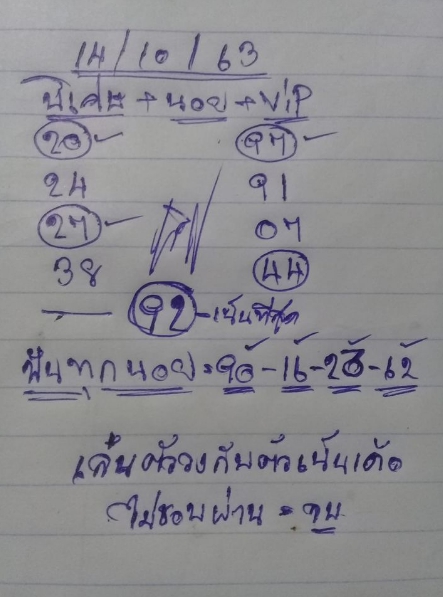 14/10/63
พิเศษ + นอย + VIP
20 97
24 91
27 07
38 44
92 - เน้นที่สุด
ฟันทุกนอย = 96 - 16 - 26 - 62
เล่นตัววงกับตัวเน้นเด้อ
ไม่ชอบผ่าน = จบ